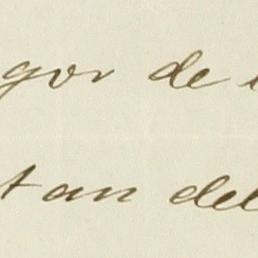 gor de
tan del